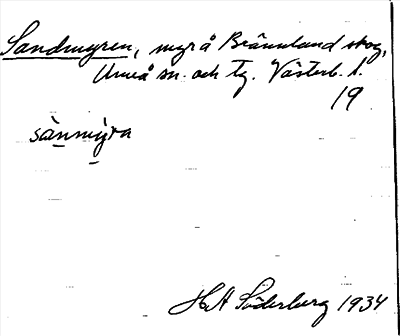 Sandmyren, myr å Brännland skog,
Umeå sn. och tg. Västerb. l.
19
sànmýra
H.H Söderberg 1934